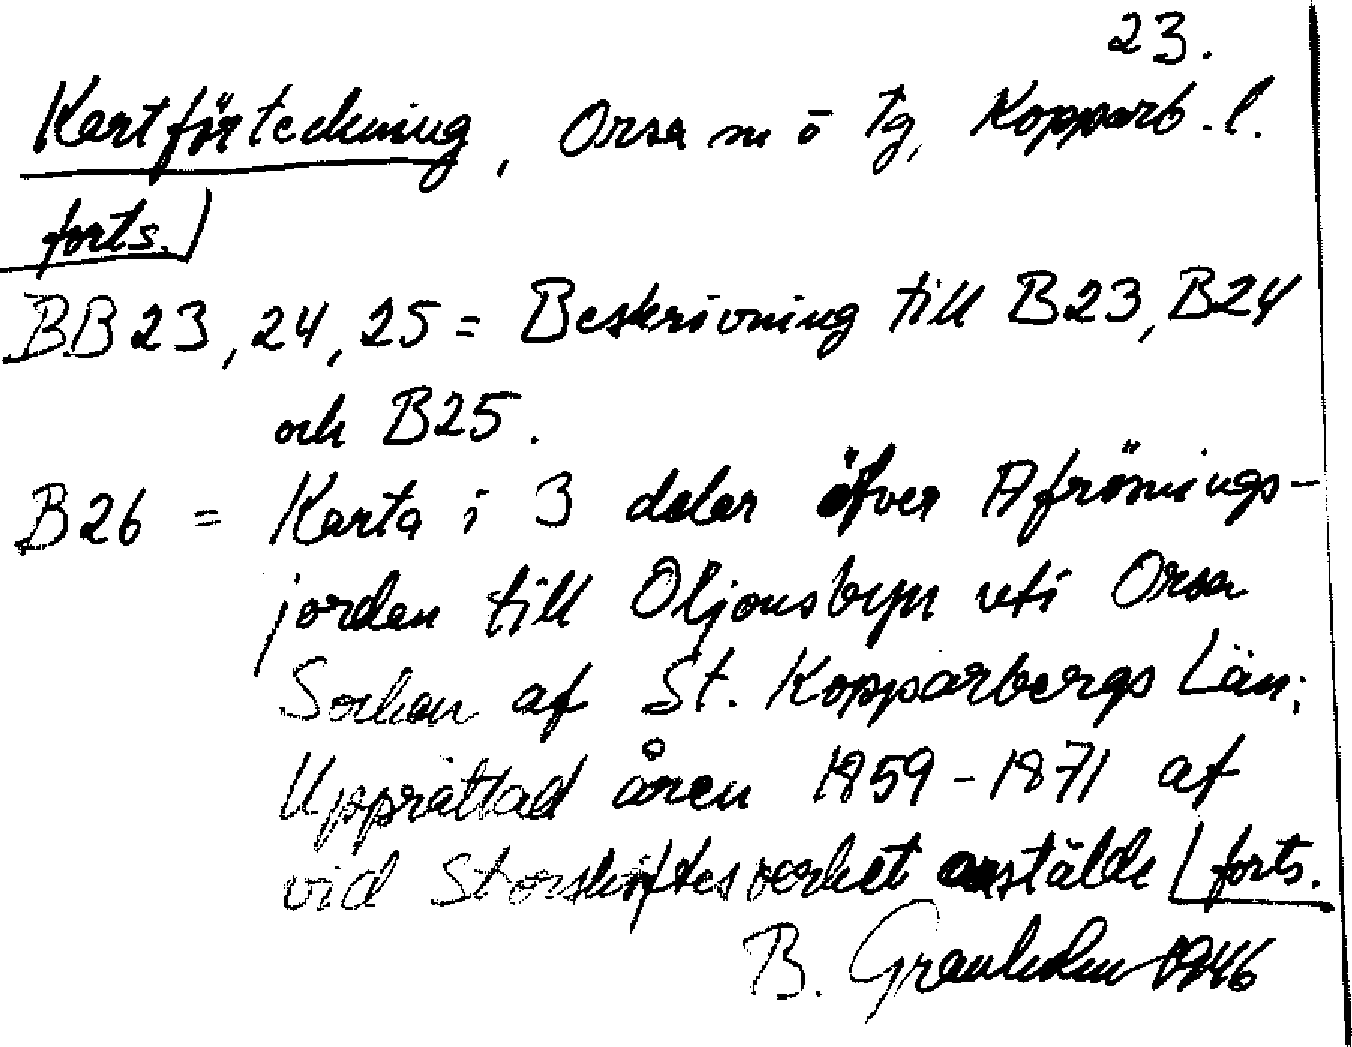 23.
Kartförteckning, Orsa m ö tg, Kopparb. l.
forts.
BB 23, 24, 25 = Beskrivning till B23, B24
och B25.
B26 = Karta i 3 delar öfver Afrösnings-
jorden till Oljonsbyn uti Orsa
Socken af St. Kopparbergs Län;
Upprättad åren 1859-1871 af
vid Storskiftesverket anstälde forts.
B. Granholm 1946